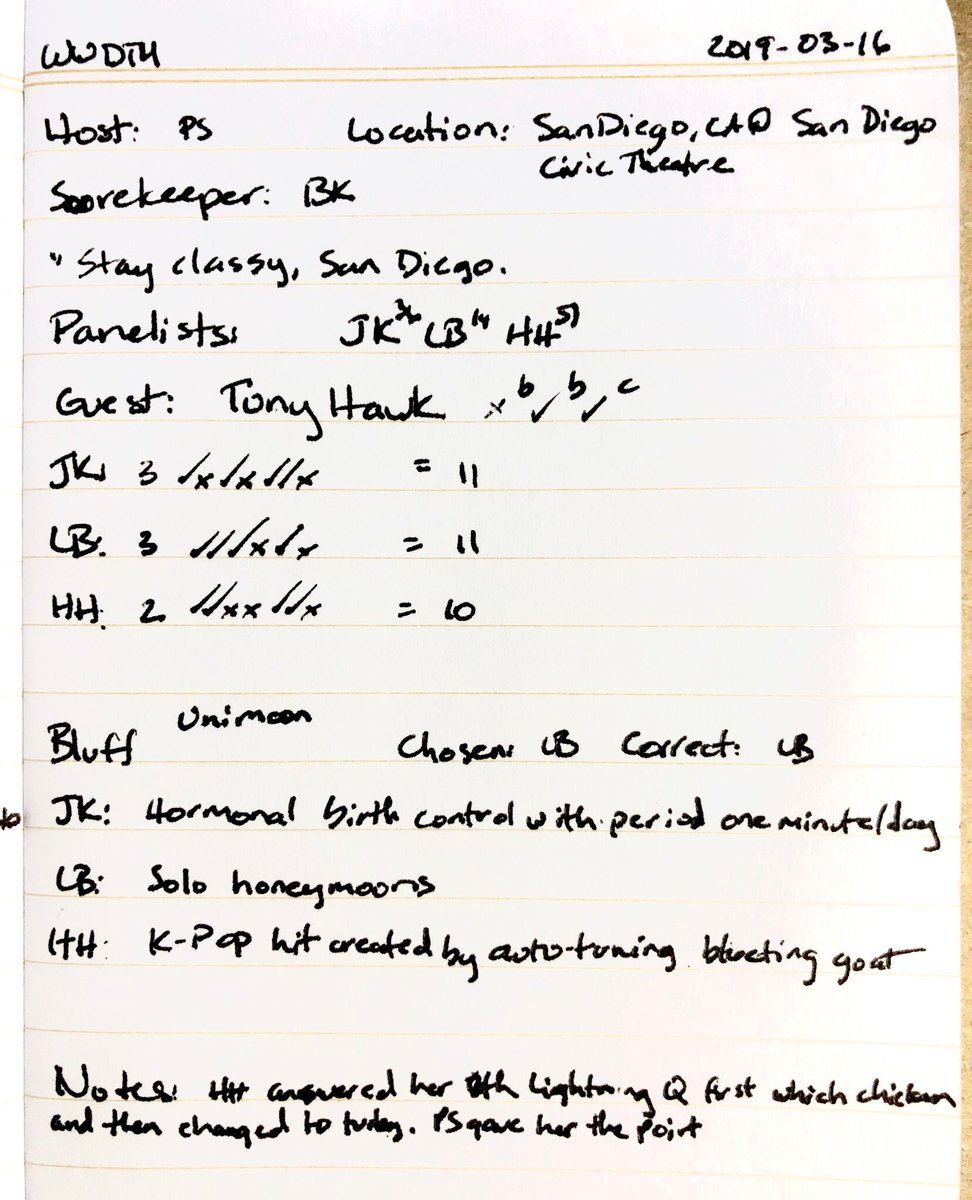 WWDTM 2019-03-16
Host: PS Location: San Diego, CA @ San Diego
Civic Theatre
Scorekeeper: BK
" Stay classy, San Diego.
Panelists: JK LB HH
Guest: Tony Hawk x b ✓ b ✓ c
JK: 3 ✓x✓x✓✓x = 11
LB: 3 ✓✓✓x✓x = 11
HH: 2 ✓✓xx✓✓x = 10
Unimoon
Bluff Chosen: LB Correct: LB
JK: Hormonal birth control with period one minute/day
LB: Solo honeymoons
HH: K-Pop hit created by auto-tuning bleeting goat
Notes: HH answered her Lightning Q first which chicken
and then changed to turkey. PS gave her the point